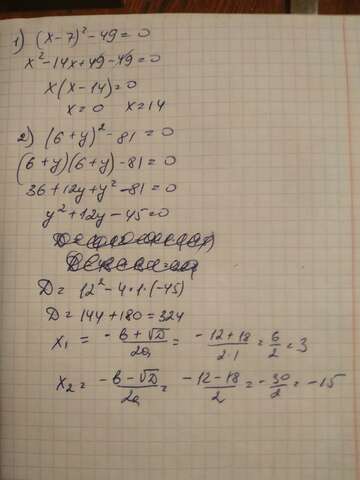 1) (x-7)² - 49 = 0
x² - 14x + 49 - 49 = 0
x(x-14) = 0
x = 0 x = 14
2) (6+y)² - 81 = 0
(6+y)(6+y) - 81 = 0
36 + 12y + y² - 81 = 0
y² + 12y - 45 = 0
D = 12² - 4·1·(-45)
D = 144 + 180 = 324
x₁ = -b+√D/2a = -12+18/2·1 = 6/2 = 3
x₂ = -b-√D/2a = -12-18/2 = -30/2 = -15